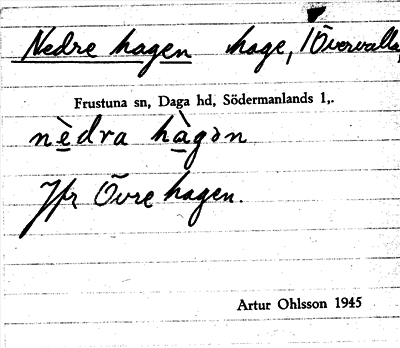 Nedre hagen hage, i Övervalla,
Frustuna sn, Daga hd, Södermanlands l,.
nèdra hàgən
Jfr Övre hagen.
Artur Ohlsson 1945